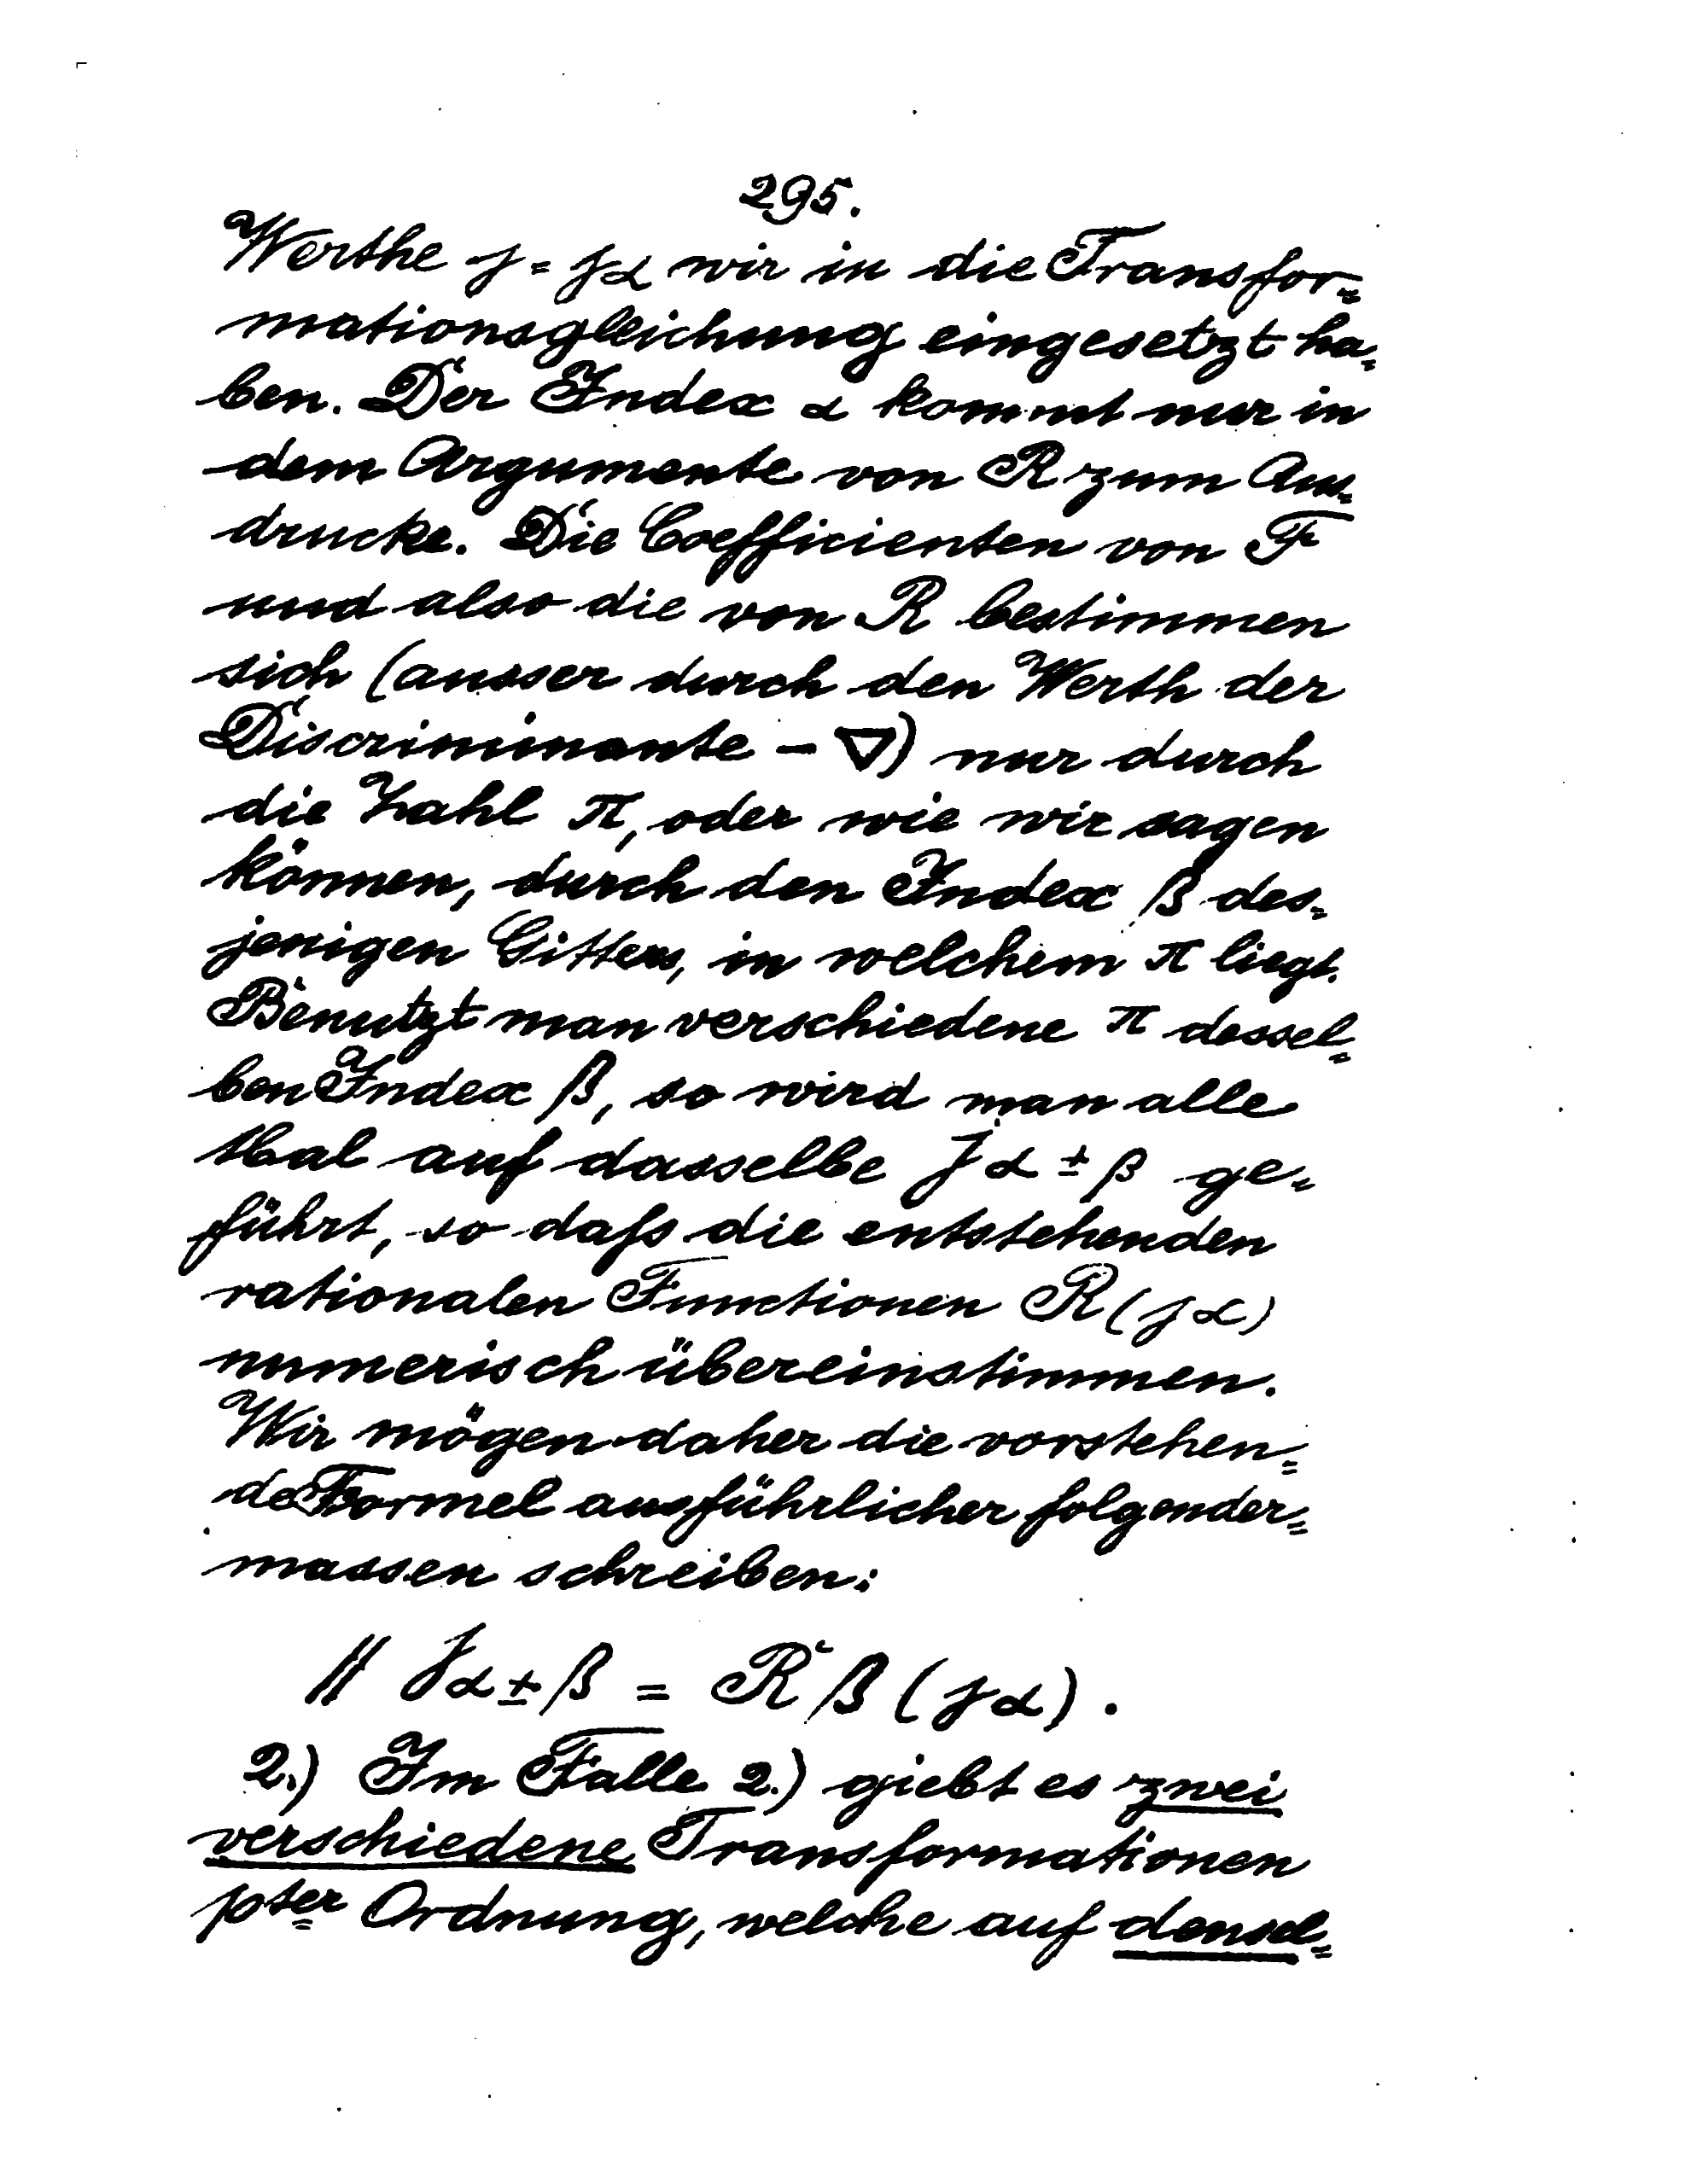 295.
Werthe j = jα wir in die Transfor=
mationsgleichung eingesetzt ha=
ben. Der Index α kommt nur in
dem Argumente von R zum Aus=
drucke. Die Coefficienten von F
und also die von R bestimmen
sich (ausser durch den Werth der
Discriminante - ∇) nur durch
die Zahl π, oder wie wir sagen
können, durch den Index β des=
jenigen Gitters, in welchem π liegt.
Benutzt man verschiedene π dessel=
ben Index β, so wird man alle
Mal auf dasselbe jα ± β ge=
führt, so daſs die entstehenden
rationalen Functionen R (jα)
numerisch übereinstimmen.
Wir mögen daher die vorstehen=
de Formel ausführlicher folgender=
massen schreiben:
|| jα ± β = R β (jα).
2.) Im Falle 2.) giebt es zwei
verschiedene Transformationen
pter Ordnung, welche auf densel=